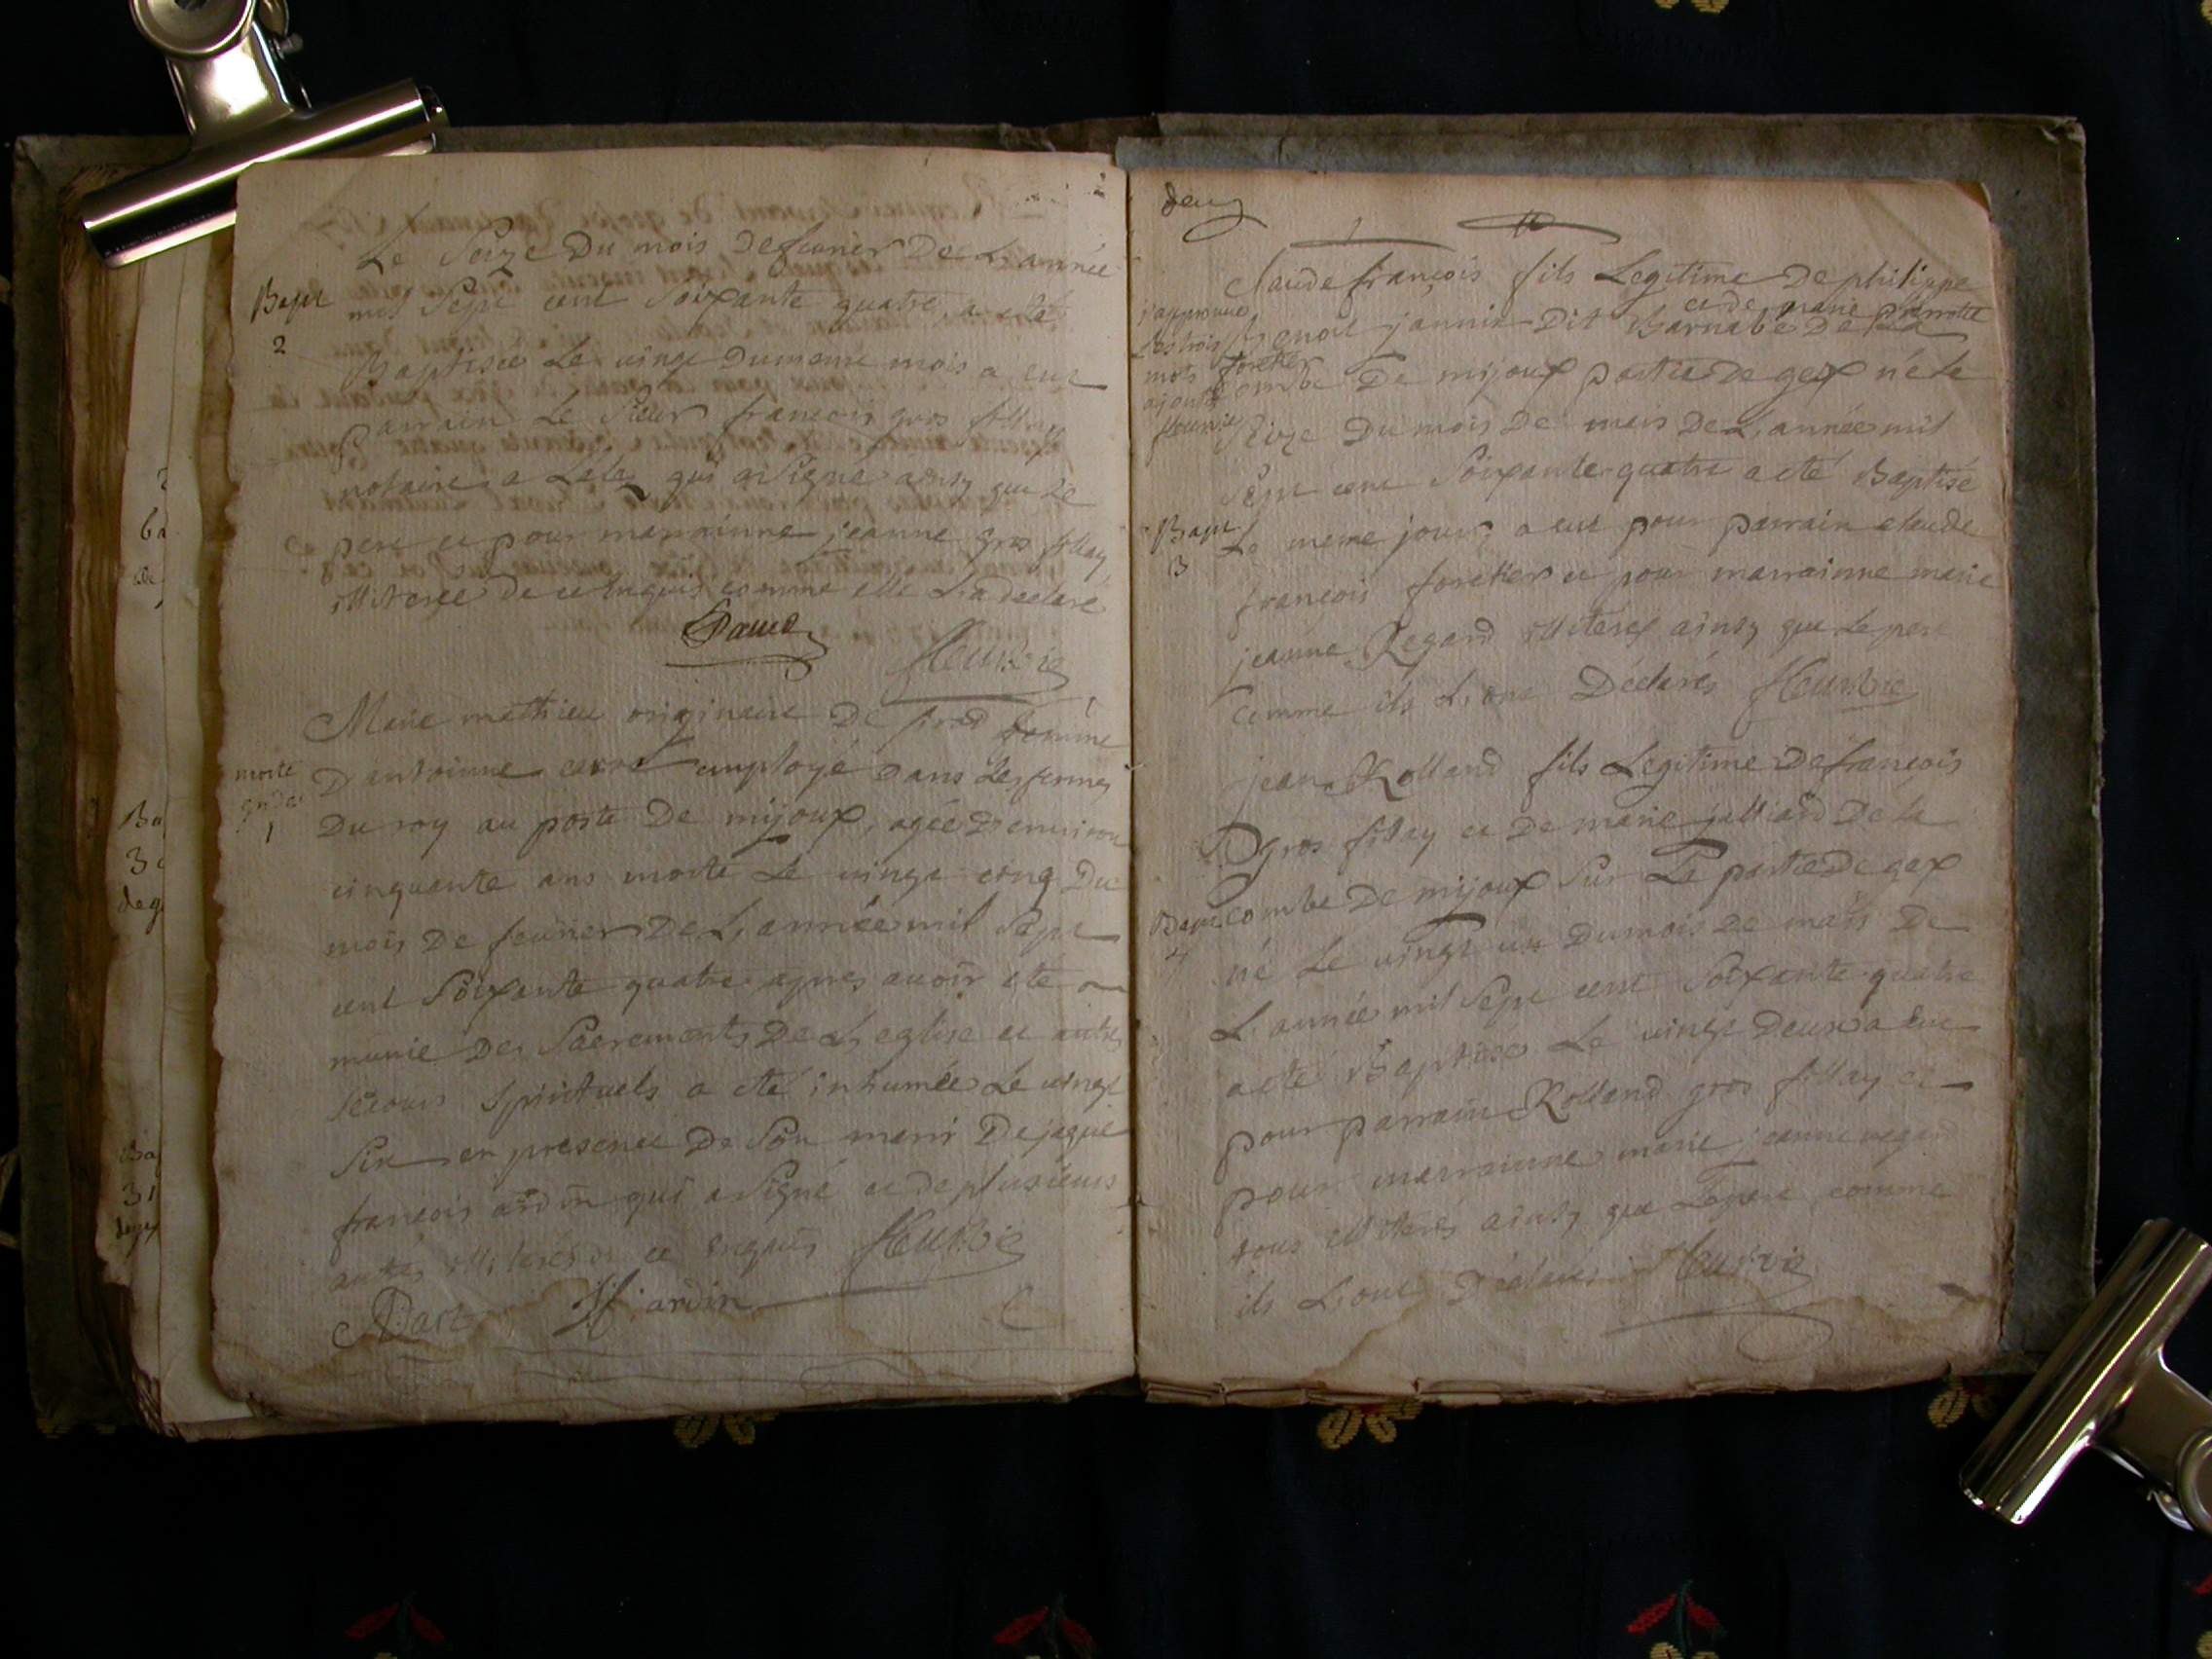 Le Seize Du mois de feurier De L'année
Bapt
2
mil Sept cent Soixante quatre, a eté
Baptisée Le vingt Du meme mois a eut
parrain Le Sieur francois gros fillay
notaire a Lela qui a Signé ainsy que Le
pere et pour marrainne jeanne gros fillay
illiterée de ce enquis comme elle L'a declaré
Meurie
Marie mathieu originaire De femme
morte
1
D'antoinne carré employé Dans Les fermes
Du roy au poste De mijoux, agée D'environ
cinquante ans morte Le vingt cinq Du
mois De feurier De L'année mil Sept
cent Soixante quatre apres auoir eté
munie Des Sacrements De L'eglise et autres
secours Spirituels a eté inhumée Le vingt
Six en presence De Son marri De jaque
francois ardin qui a Signé et de plusieurs
autres illiterés de ce enquis
jf ardin
deux
Claude françois fils Legitime De philippe
et de marie
j'approuue
Les trois
mots
ajouté
benoit jannin Dit Barnabé De La
combe De mijoux partie De gex né Le
Seize Du mois De mars De L'année mil
Sept cent Soixante quatre a eté Baptisé
Bapt
3
Le meme jour a eut pour parrain claude
françois foretier et pour marrainne marie
jeanne Regard illiterés ainsy que Le pere
comme ils L'ont Déclarés
jean Rolland fils Legitime De francois
gros fillay et De marie julliard De la
combe De mijoux Sur La partie De gex
Bapt
4
né Le vingt un Du mois De mars De
L'année mil Sept cent Soixante quatre
a eté Baptisé Le vingt Deux a eut
pour parrain Rolland gros fillay et
pour marrainne marie jeanne regard
tous illiterés ainsy que Le pere comme
ils L'ont Déclarés